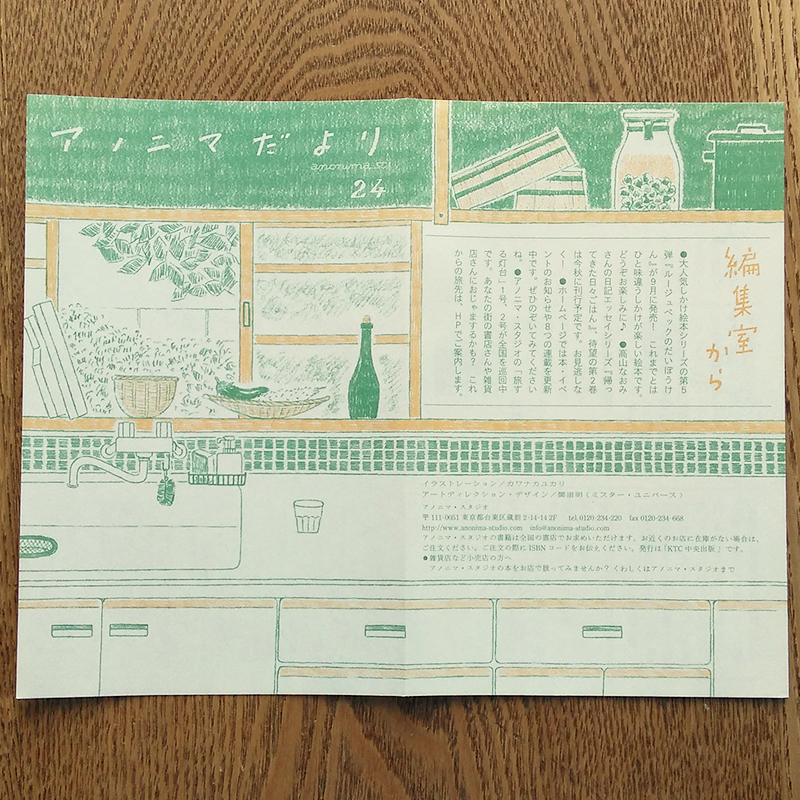 アノニマだより
anonima st.
24
編集室から
●大人気しかけ絵本シリーズの第5
弾『ルージュベックのだいぼうけ
ん』が9月に発売！ これまでとは
ひと味違うしかけが楽しい絵本です。
どうぞお楽しみに♪ ●高山なおみ
さんの日記エッセイシリーズ『帰っ
てきた日々ごはん』、待望の第2巻
は今秋に刊行予定です。お見逃しな
く！ ●ホームページでは本・イベ
ントのお知らせや8つの連載を更新
中です。ぜひのぞいてみてください
ね。●アノニマ・スタジオの「旅す
る灯台」1号、2号が全国を巡回中
です。あなたの街の書店さんや雑貨
店さんにおじゃまするかも？ これ
からの旅先は、HPでご案内します。
イラストレーション／カワナカユカリ
アートディレクション・デザイン／関宙明（ミスター・ユニバース）
アノニマ・スタジオ
〒111-0051 東京都台東区蔵前2-14-14 2F tel 0120-234-220 fax 0120-234-668
http://www.anonima-studio.com info@anonima-studio.com
アノニマ・スタジオの書籍は全国の書店でお求めいただけます。お近くのお店に在庫がない場合は、
ご注文ください。ご注文の際にISBNコードをお伝えください。発行は「KTC中央出版」です。
●雑貨店など小売店の方へ
アノニマ・スタジオの本をお店で扱ってみませんか？ くわしくはアノニマ・スタジオまで